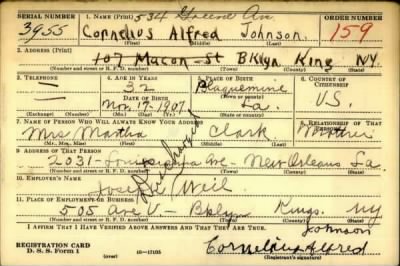 SERIAL NUMBER
1. NAME (Print) 534 Greene Av.
ORDER NUMBER
3955
Cornelius Alfred Johnson.
159
(First) (Middle) (Last)
2. ADDRESS (Print)
107 Macon-St Bklyn King NY.
(Number and street or R. F. D. number) (Town) (County) (State)
3. TELEPHONE
4. AGE IN YEARS
5. PLACE OF BIRTH
6. COUNTRY OF CITIZENSHIP
32
Plaquemine
(Town or county)
DATE OF BIRTH
U.S.
Nov. 17. 1907.
La.
(Exchange) (Number) (Mo.) (Day) (Yr.) (State or country)
7. NAME OF PERSON WHO WILL ALWAYS KNOW YOUR ADDRESS
8. RELATIONSHIP OF THAT PERSON
Mrs Martha Clark Mother
(Mr., Mrs., Miss) (First) (Middle) (Last)
9. ADDRESS OF THAT PERSON
2031- Ave- New Orleans La.
(Number and street or R. F. D. number) (Town) (County) (State)
Discharged
10. EMPLOYER'S NAME
Joseph Weil
11. PLACE OF EMPLOYMENT OR BUSINESS
505 Ave U- Bklyn Kings. NY
(Number and street or R. F. D. number) (Town) (County) (State)
I AFFIRM THAT I HAVE VERIFIED ABOVE ANSWERS AND THAT THEY ARE TRUE.
Johnson
REGISTRATION CARD
D. S. S. Form 1
16-17105
Cornelius Alfred
(Registrant's signature)